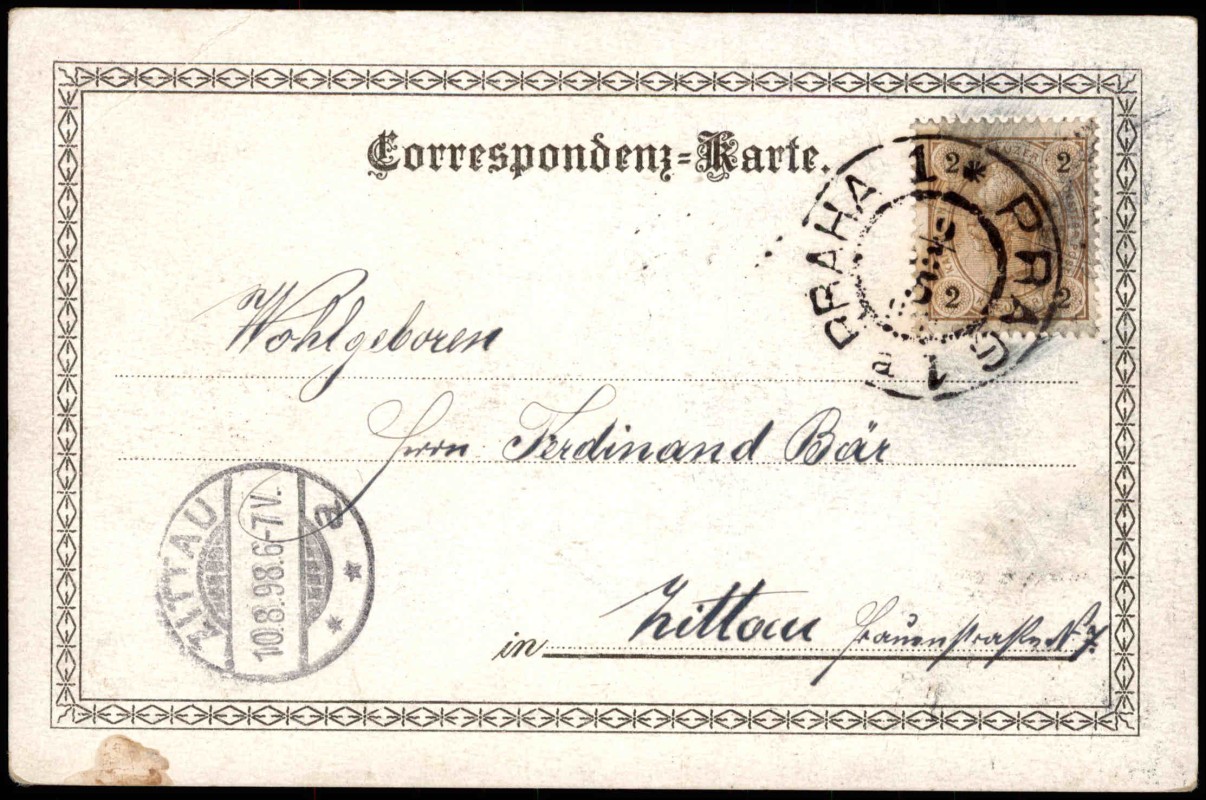 Correspondenz-Karte.
2 2
2 2
PRAHA 1 * PRAG 1
Wohlgeboren
Herrn Ferdinand Bär
ZITTAU a
10.8.98.6-7V.
in Zittau Frauenstraße N 7.